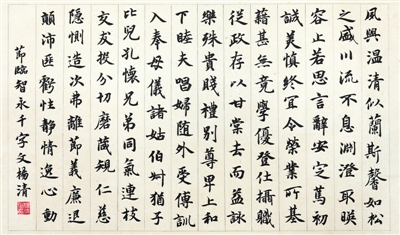 夙興溫清似蘭斯馨如松
之盛川流不息淵澄取暎
容止若思言辭安定篤初
誠美慎終宜令榮業所基
藉甚無竟學優登仕攝職
從政存以甘棠去而益詠
樂殊貴賤禮別尊卑上和
下睦夫唱婦随外受傅訓
入奉母儀諸姑伯叔猶子
比兒孔懷兄弟同氣連枝
交友投分切磨葴規仁慈
隱惻造次弗離節義廉退
顛沛匪虧性静情逸心動
節臨智永千字文楊清